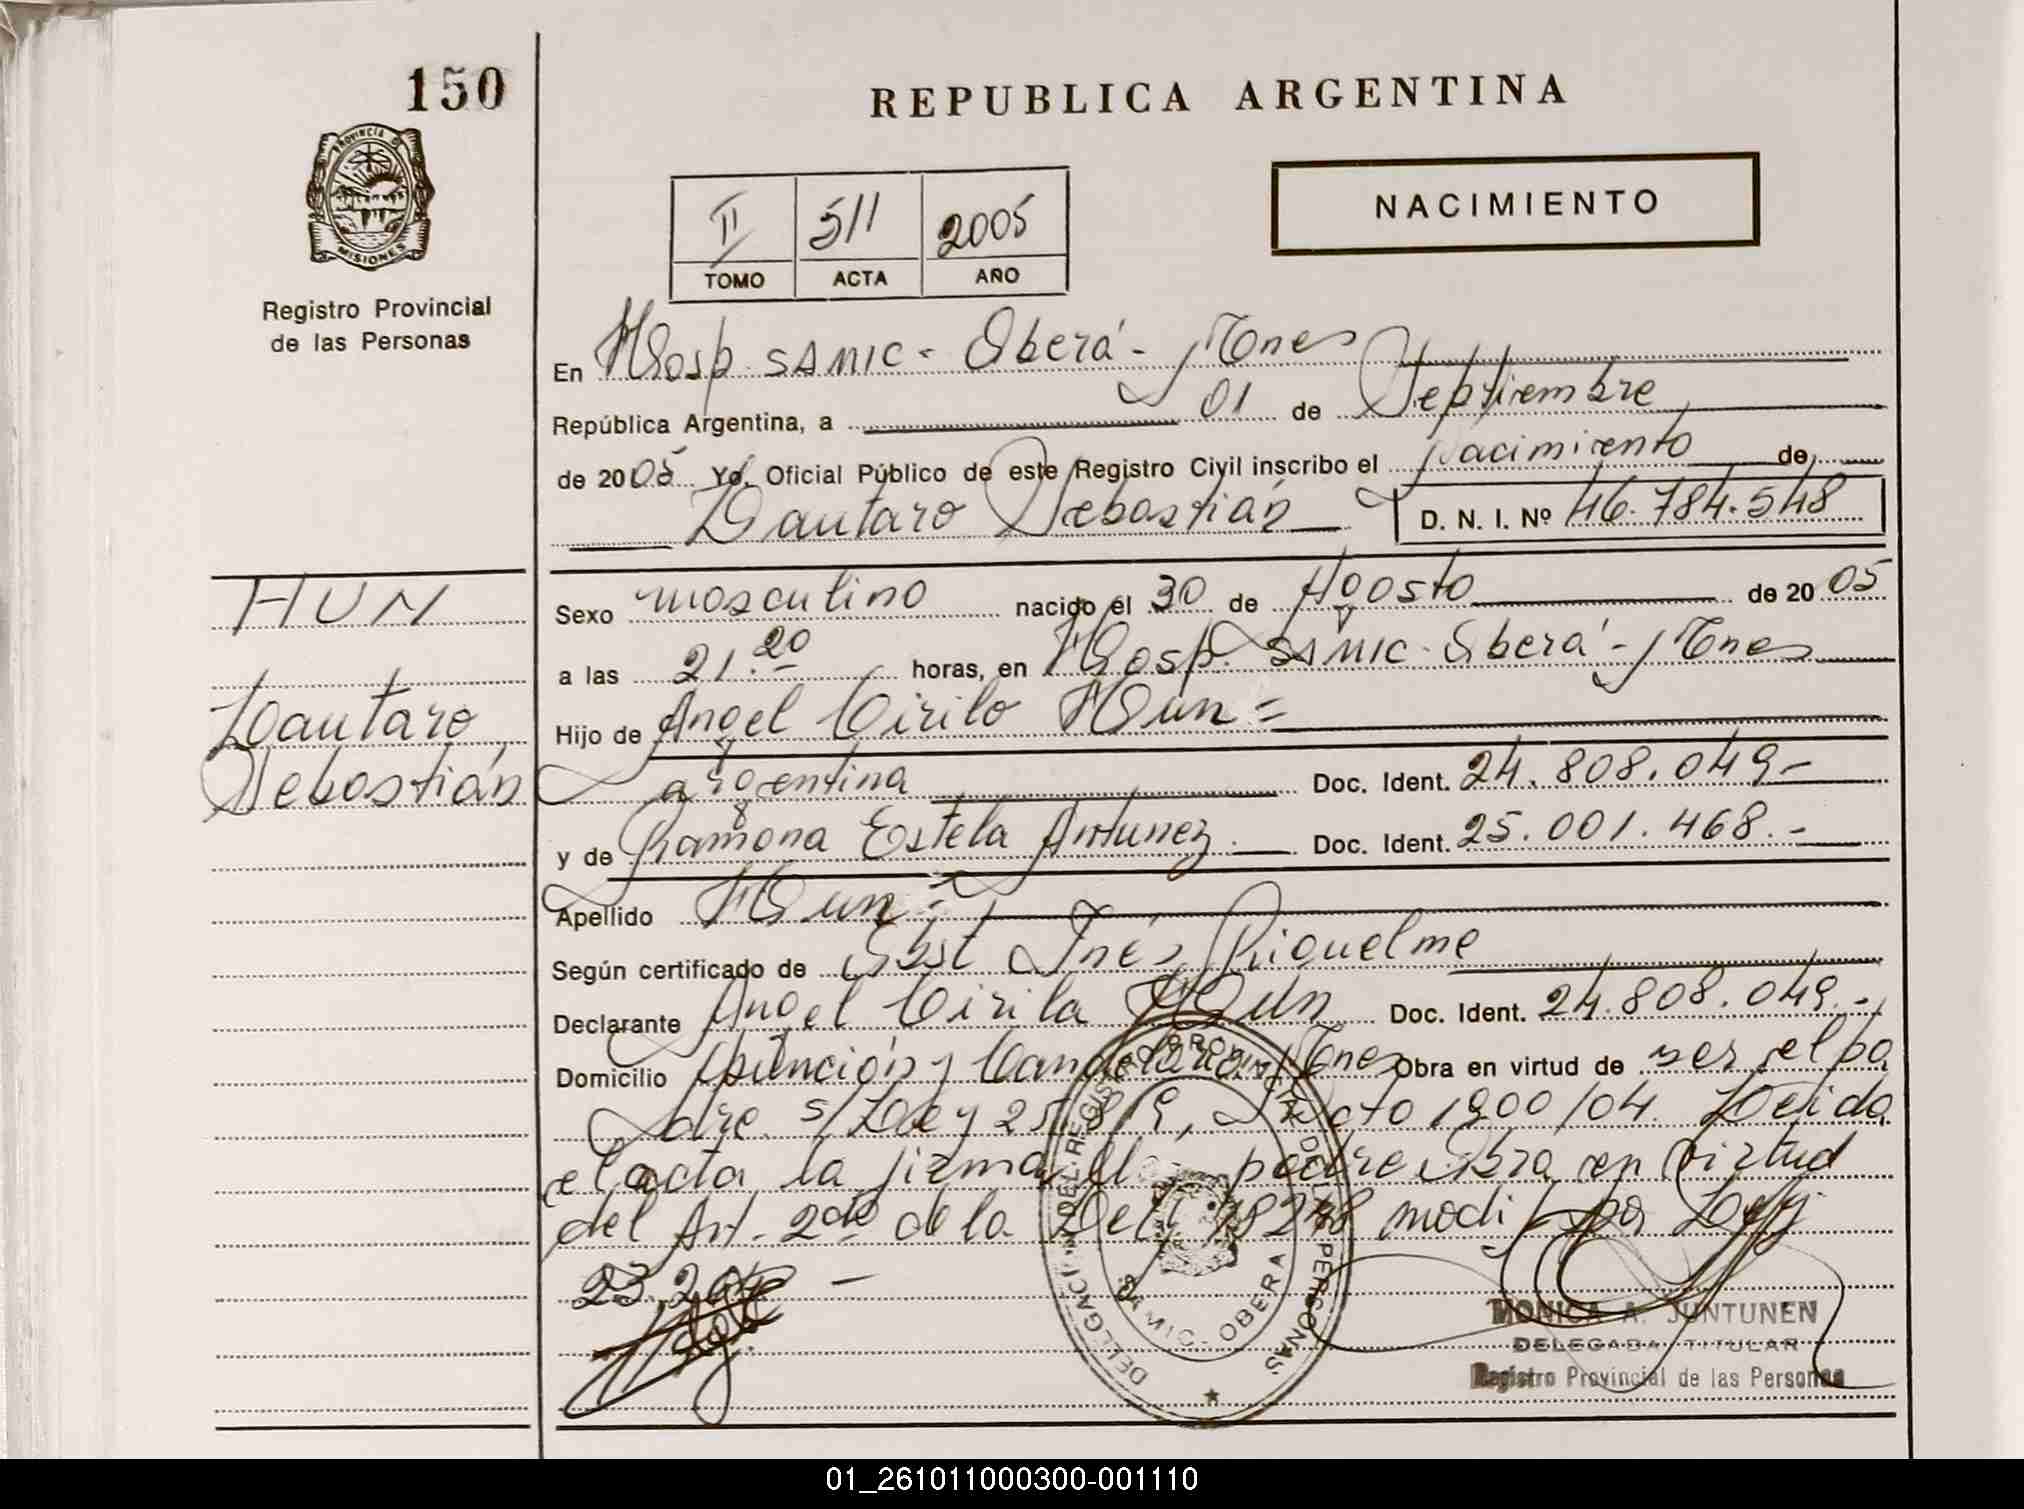 150
REPUBLICA ARGENTINA
PROVINCIA DE
MISIONES
Registro Provincial
de las Personas
NACIMIENTO
II 511 2005
TOMO ACTA AÑO
En Hosp. SAMIC - Oberá - Mnes
República Argentina, a 01 de Septiembre
de 2005 Yó, Oficial Público de este Registro Civil inscribo el nacimiento de
Lautaro Sebastián D. N. I. Nº 46.784.548
HUN
Lautaro
Sebastián
Sexo masculino nacido el 30 de Agosto de 2005
a las 21.20 horas, en Hosp. SAMIC - Oberá - Mnes
Hijo de Angel Cirilo Hun =
argentina Doc. Ident. 24.808.049-
y de Ramona Estela Antunez Doc. Ident. 25.001.468.-
Apellido Hun =
Según certificado de Obst Inés Riquelme
Declarante Angel Cirilo Hun Doc. Ident. 24.808.049.-
Domicilio Asunción y Candelaria, Mnes Obra en virtud de ser el pa
dre s/Ley 25.819, Dcto 1900/04. Leida
el acta la firma el padre Obra en virtud
del Art. 2do de la Ley 18248 modif por Ley
23.
DELEGACI DEL REGISTRO PROVINCIAL DE LAS PERSONAS
SAMIC - OBERA
MONICA A. JUNTUNEN
DELEGADA TITULAR
Registro Provincial de las Personas
01_261011000300-001110